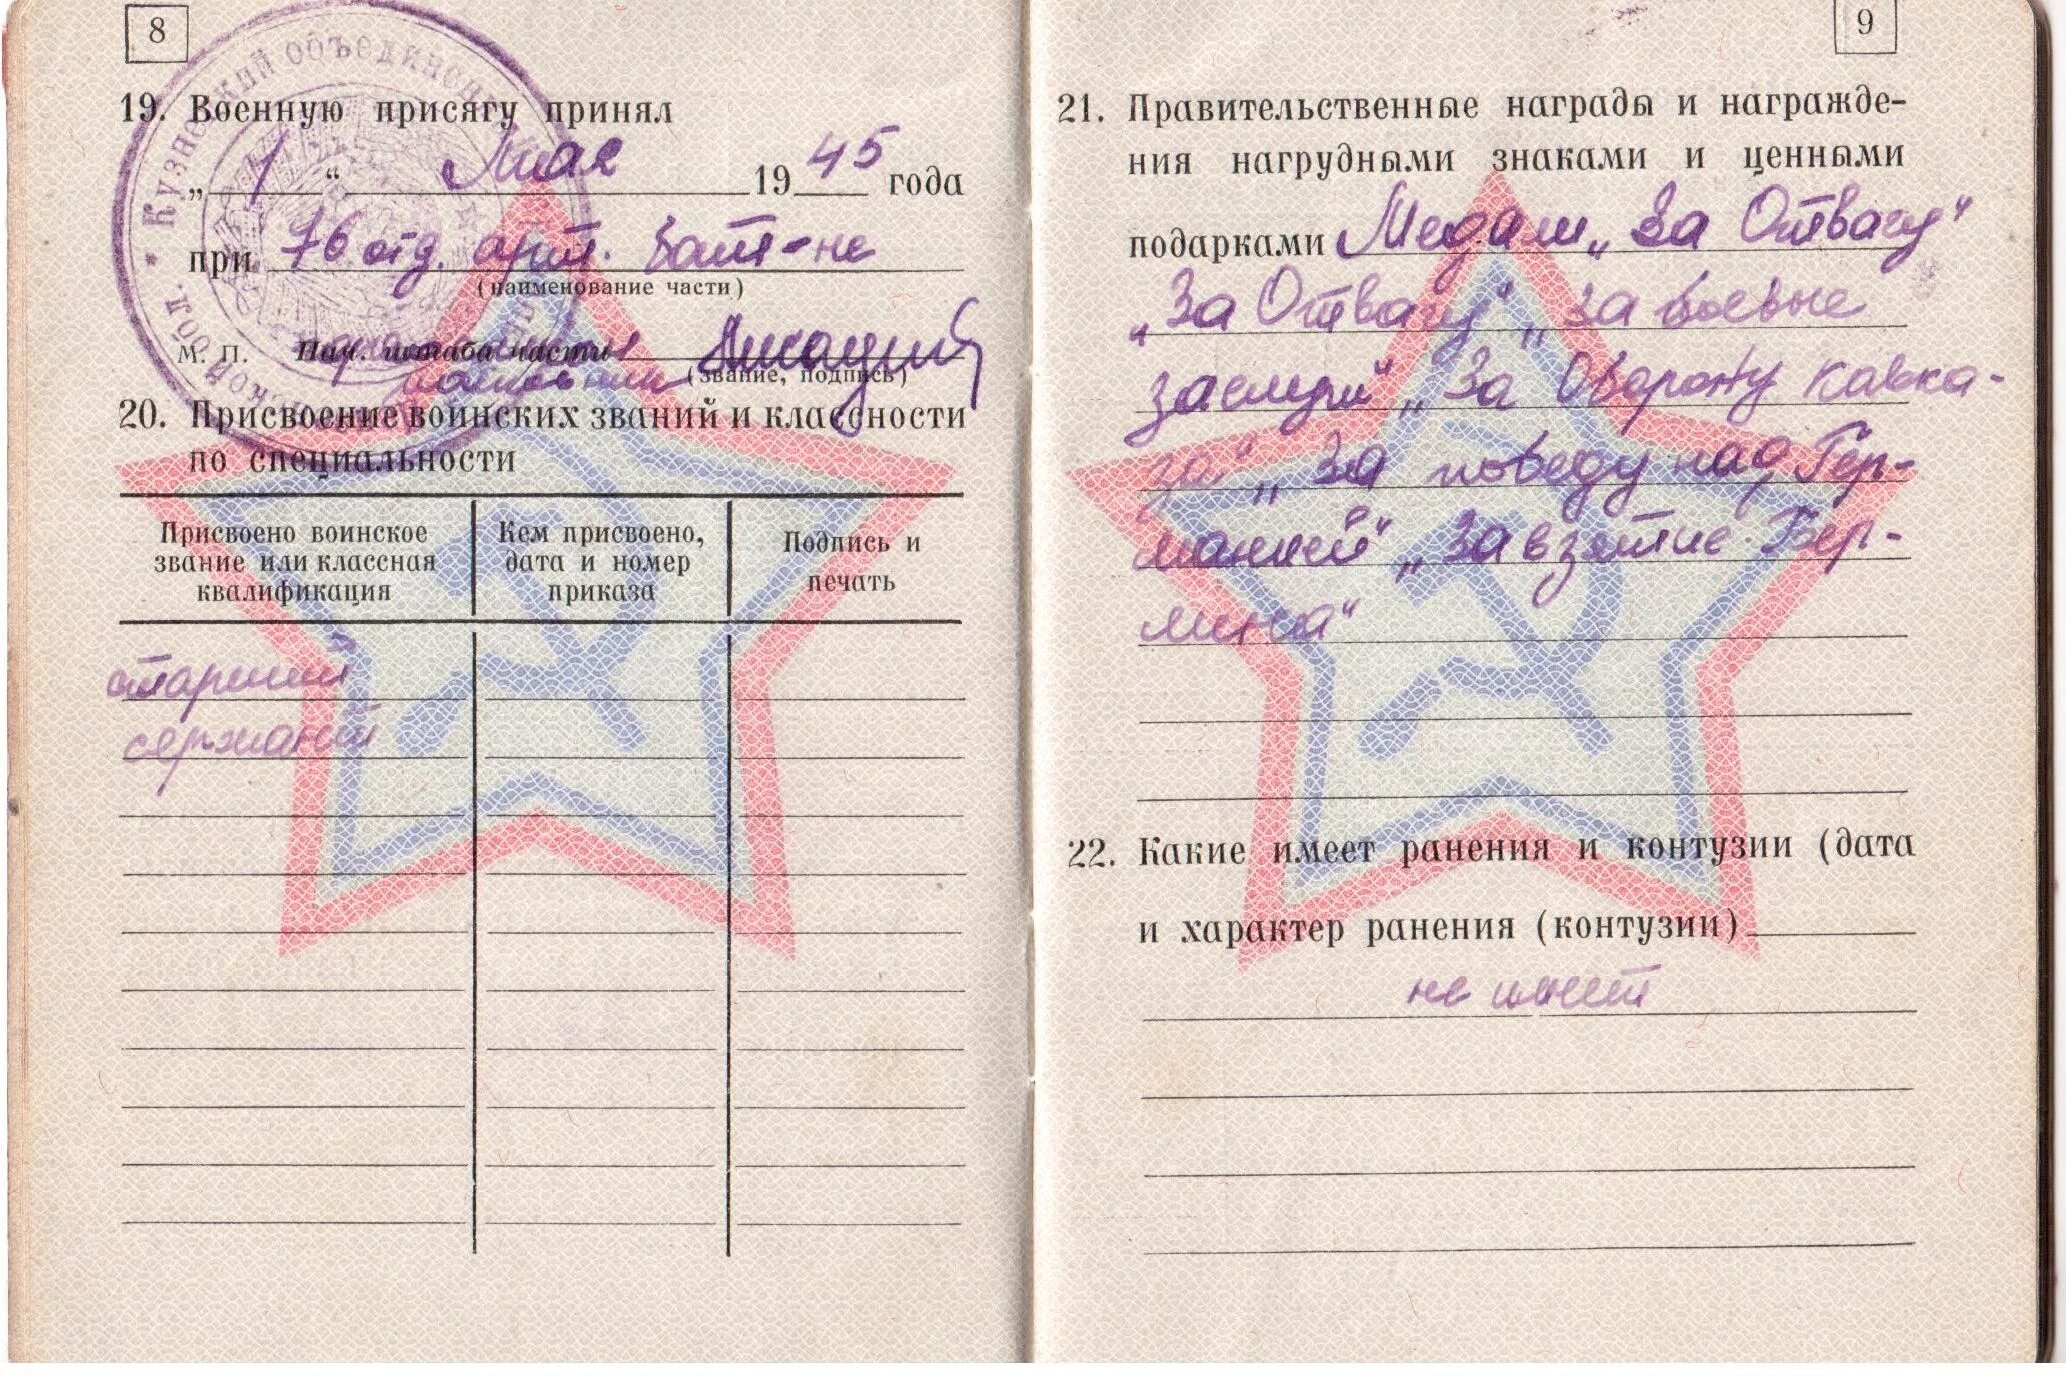 8
19. Военную присягу принял
„ 1 “ Мая 1945 года
при 76 отд. арт. бат-не
(наименование части)
М. П. Нач. штаба части
(звание, подпись)
20. Присвоение воинских званий и классности
по специальности
Присвоено воинское
звание или классная
квалификация
Кем присвоено,
дата и номер
приказа
Подпись и
печать
старший
сержант
Кузнецкий объединен
обл.
9
21. Правительственные награды и награжде-
ния нагрудными знаками и ценными
подарками Медали „За Отвагу“
„За Отвагу“ „За боевые
заслуги“ „За Оборону Кавка-
за“ „За победу над Гер-
манией“ „За взятие Бер-
лина“
22. Какие имеет ранения и контузии (дата
и характер ранения (контузии)
не имеет